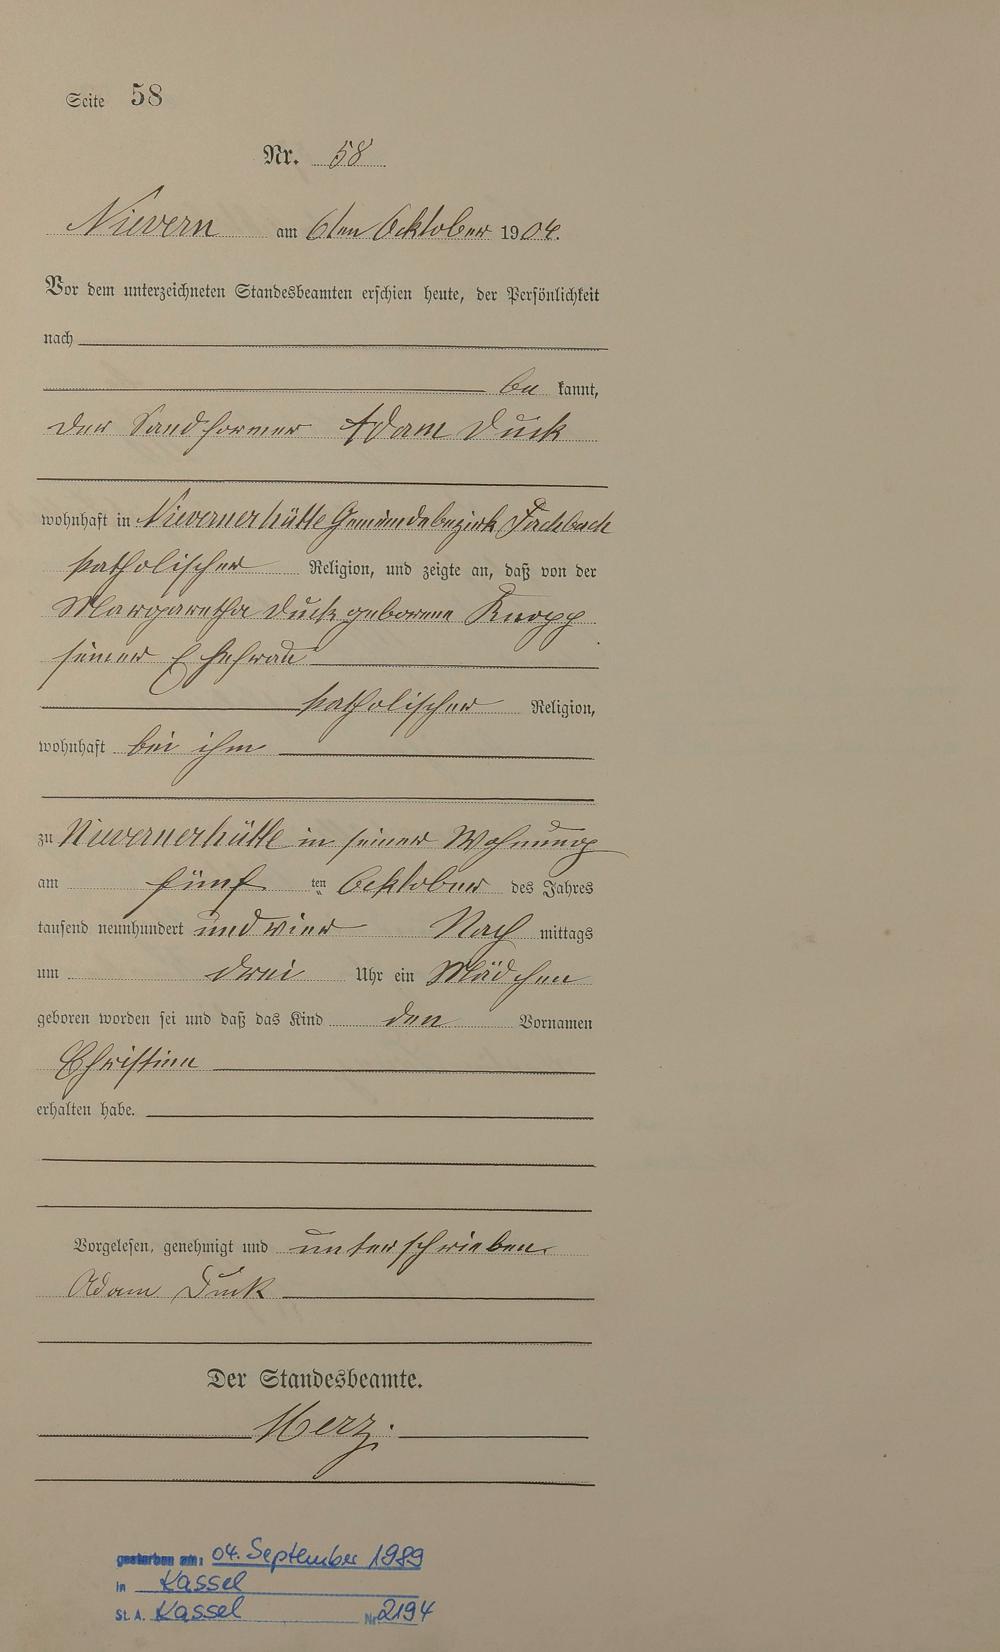 Seite 58
Nr. 58
Nievern am 6ten Oktober 1904.
Vor dem unterzeichneten Standesbeamten erschien heute, der Persönlichkeit
nach
be kannt,
der Sandformer Adam Duck
wohnhaft in Nievernerhütte Gemeindebezirk Fachbach
katholischer Religion, und zeigte an, daß von der
Margaretha Duck geborene Knopp
seiner Ehefrau
katholischer Religion,
wohnhaft bei ihm
zu Nievernerhütte in seiner Wohnung
am fünften Ocktober des Jahres
tausend neunhundert und vier Nach mittags
um drei Uhr ein Mädchen
geboren worden sei und daß das Kind den Vornamen
Christine
erhalten habe.
Vorgelesen, genehmigt und unterschrieben
Adam Duck
Der Standesbeamte.
Merz.
gestorben am: 04. September 1989
in Kassel
St. A. Kassel Nr 2194